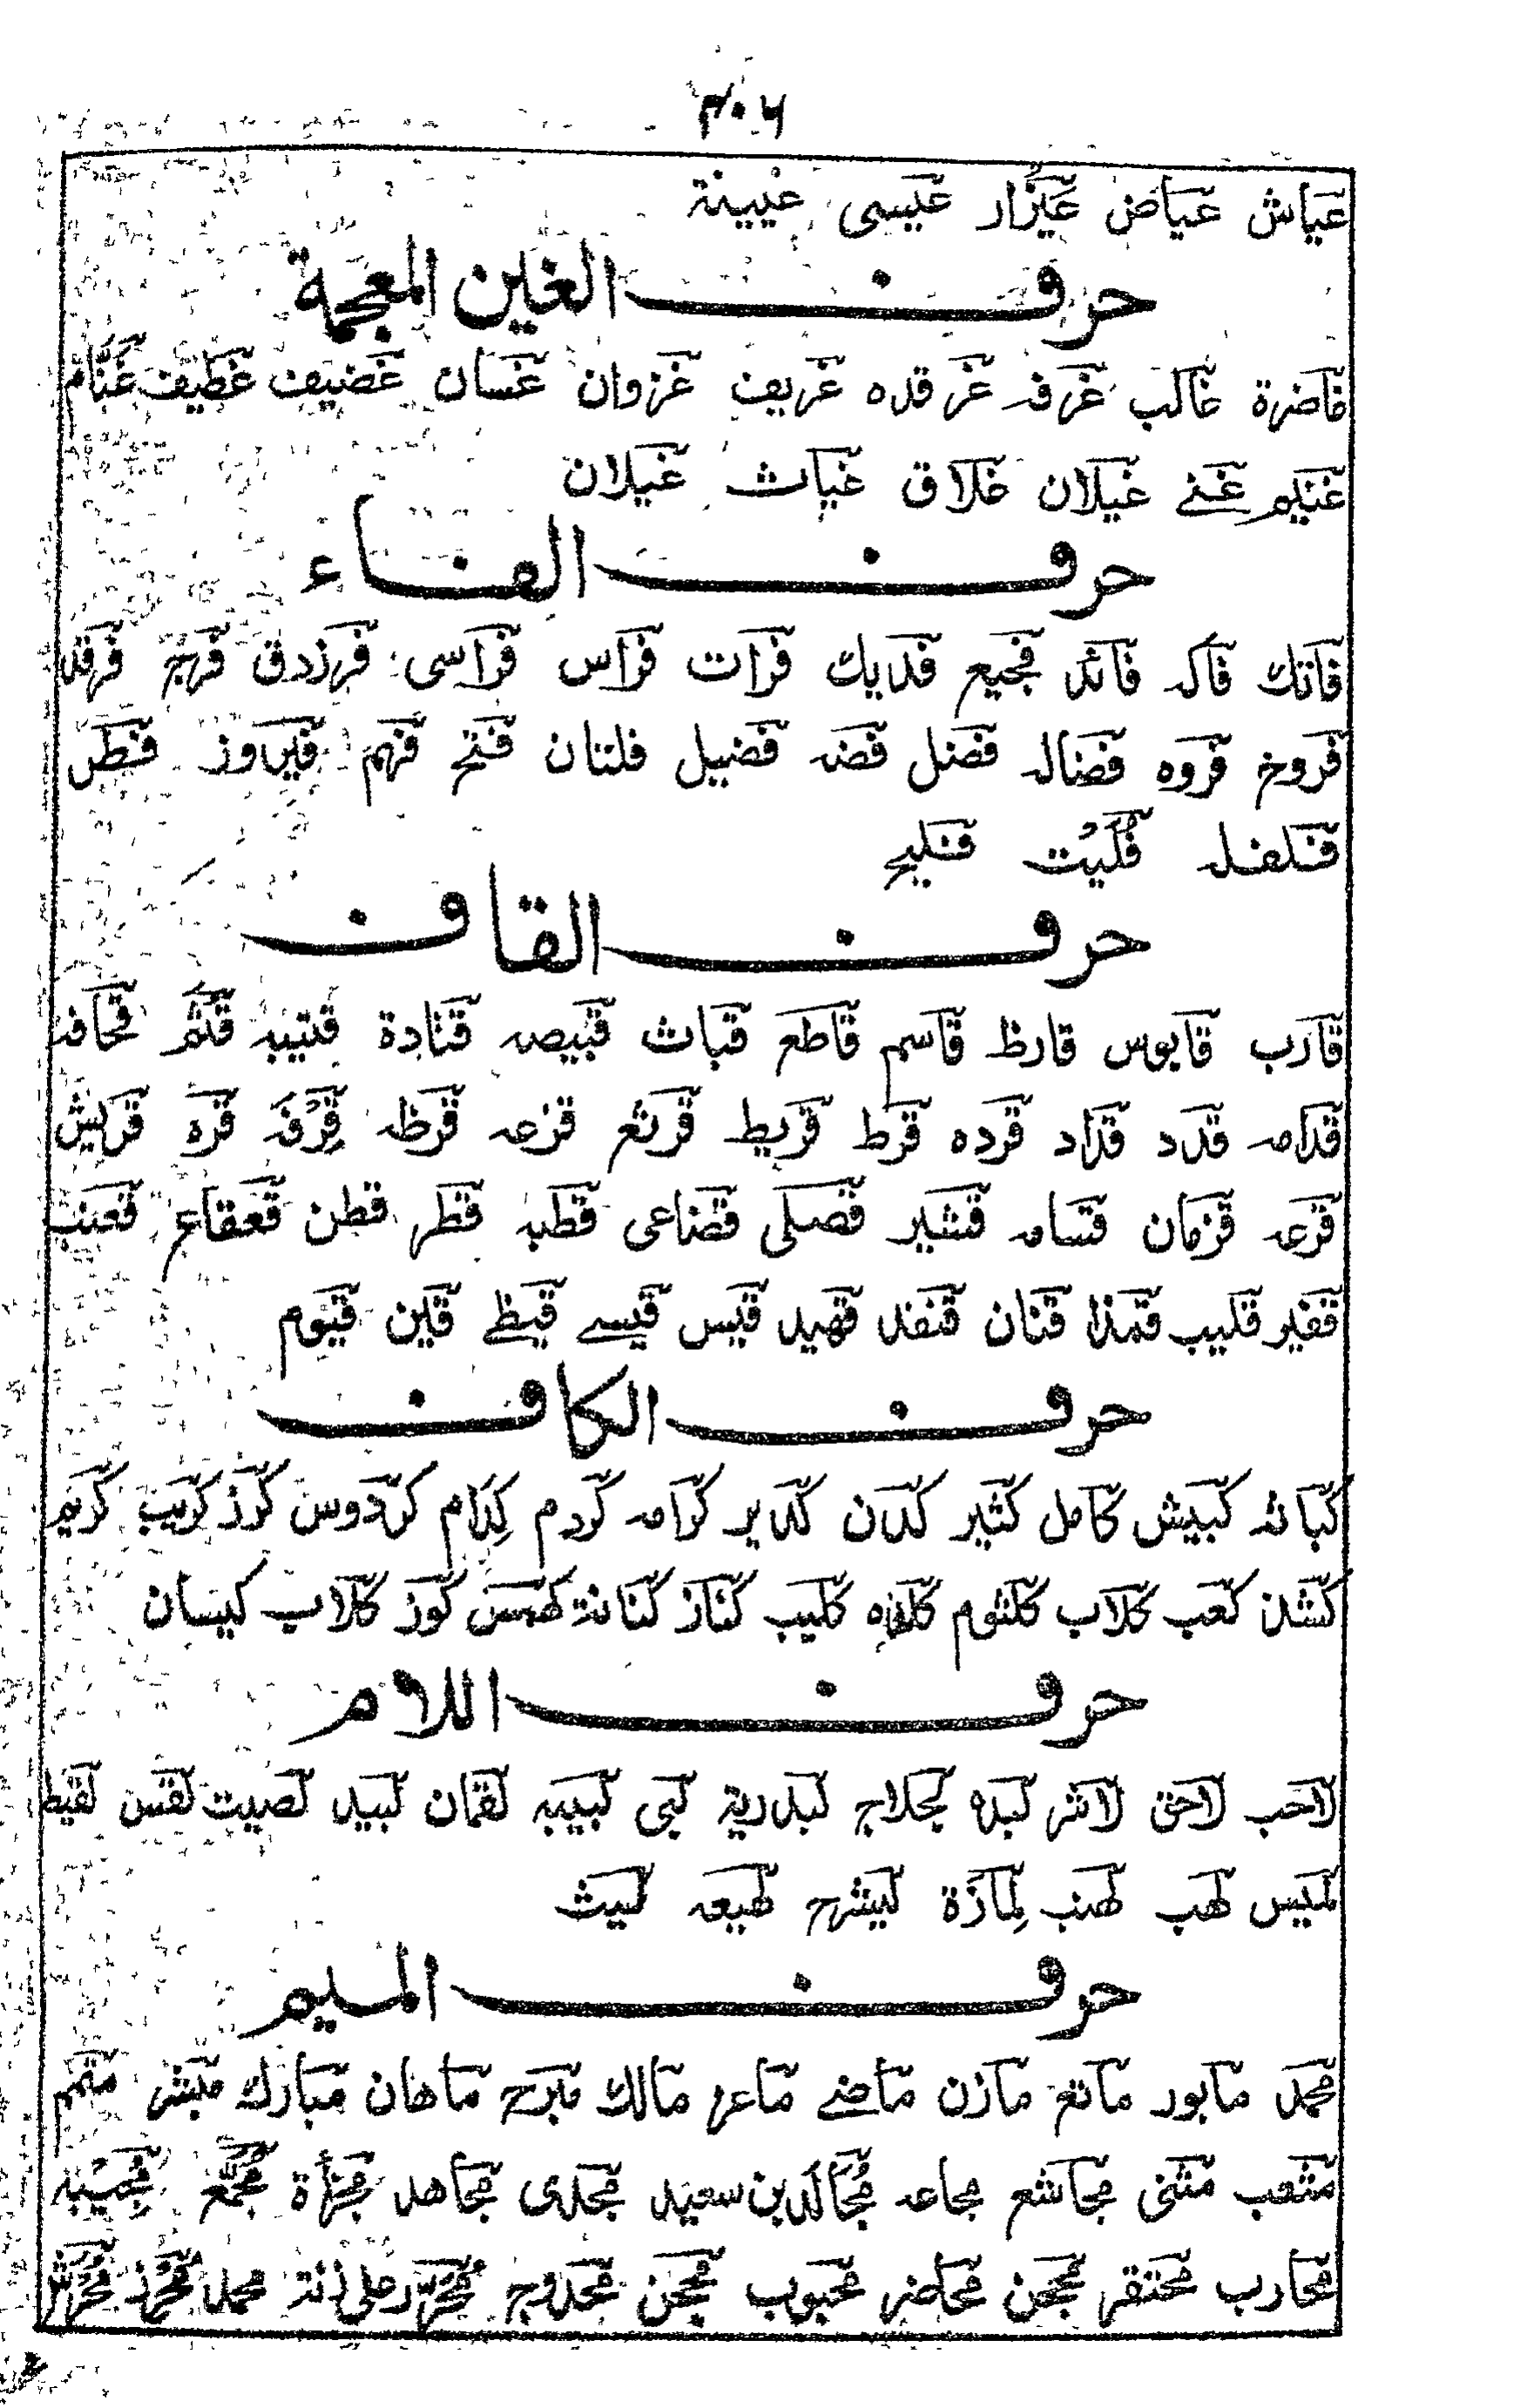 ۳۰۶
عیاش عیاض عَیْزَار عیسی عیینة
حرف الغین المعجمة
غاضرة غالب غرفه غرقده غریف غزوان غسان غضیف غطیف غَنَّام
غنیم غنے غیلان غلاق غیاث غیلان
حرف الفاء
فاتك فاکه فائد فجیع فدیك فرات فراس فراسی فرزدق فرج فرقد
فروخ فروه فضاله فضل فضه فضیل فلتان فتح فهم فیروز فطر
فلفله فُلَیْت فلیح
حرف القاف
قارب قابوس قارظ قاسم قاطع قباث قبیصه قتادة قتیبه قثم قحافه
قدامه قدد قداد قرده قرط قریط قرثع قزعه قرظه قِرْفَه قره قریش
قزعه قزمان قسامه قشیر قصلی قضاعی قطبه قطر قطن قعقاع قعنب
قفیر قلیب قمذا قنان قنفد قهید قیس قیسے قیظے قین قیوم
حرف الکاف
کباثه کبیش کامل کثیر کدن کدیر کرامه کردم کِلام کردوس کرز کریب کریم
کشد کعب کلاب کلثوم کلاه کلیب کناز کنانة کهمس کوز کلاب کیسان
حرف اللام
لاحب لاحق لاشر لبده لجلاج لبدریة لبی لبیبه لقمان لبید لصیت لقس لقیط
لمیس لهب لِمازَة لیشرح لهیعه لیث
حرف المیم
محمد مابور ماتع مازن ماضے ماعز مالك مبرح ماهان مبارك مبشر متمم
مثعب مثنی مجاشع مجاعه مُجَالِد بن سعید مجدی مجاهد مجزأة مُجَمِّع مُجِیْبه
محارب محتقر محجن محاضر محبوب محجن محدوج